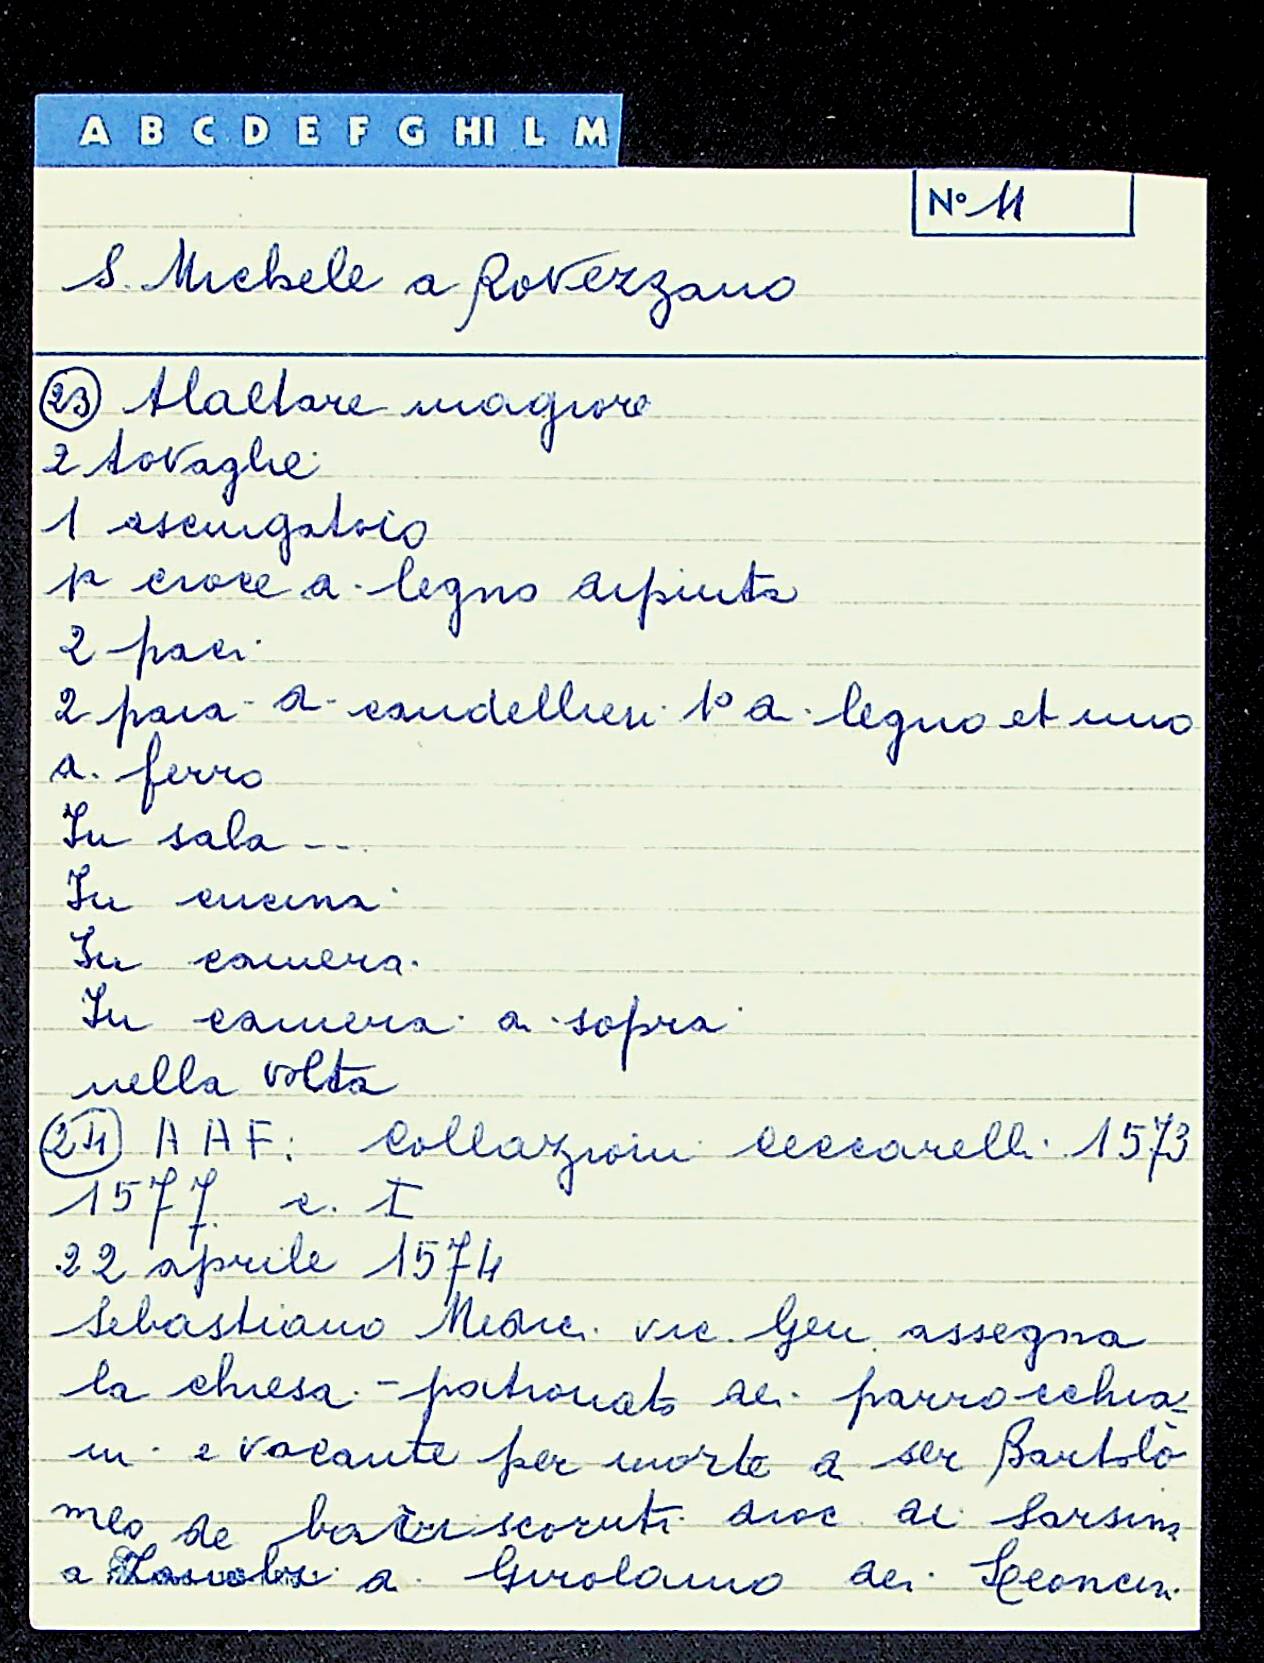 A B C D E F G HI L M
N° 11
S. Michele a Rovezzano
23 Alaltare magiore
2 tovaghe
1 asciugatoio
1a croce d. legno dipinta
2 paci
2 paia d. candellieri 1o d. legno et uno
d. ferro
In sala ...
In cucina
In camera.
In camera d. sopra
nella volta
24 A A F: Collazioni Ceccarelli 1573
1577 c. I
22 aprile 1574
Sebastiano Medici vic. Gen. assegna
la chiesa - patronato dei parrocchia=
ni e vacante per morte d ser Bartolo
meo de dioc di Sarsina
a Zanobi d. Girolamo dei